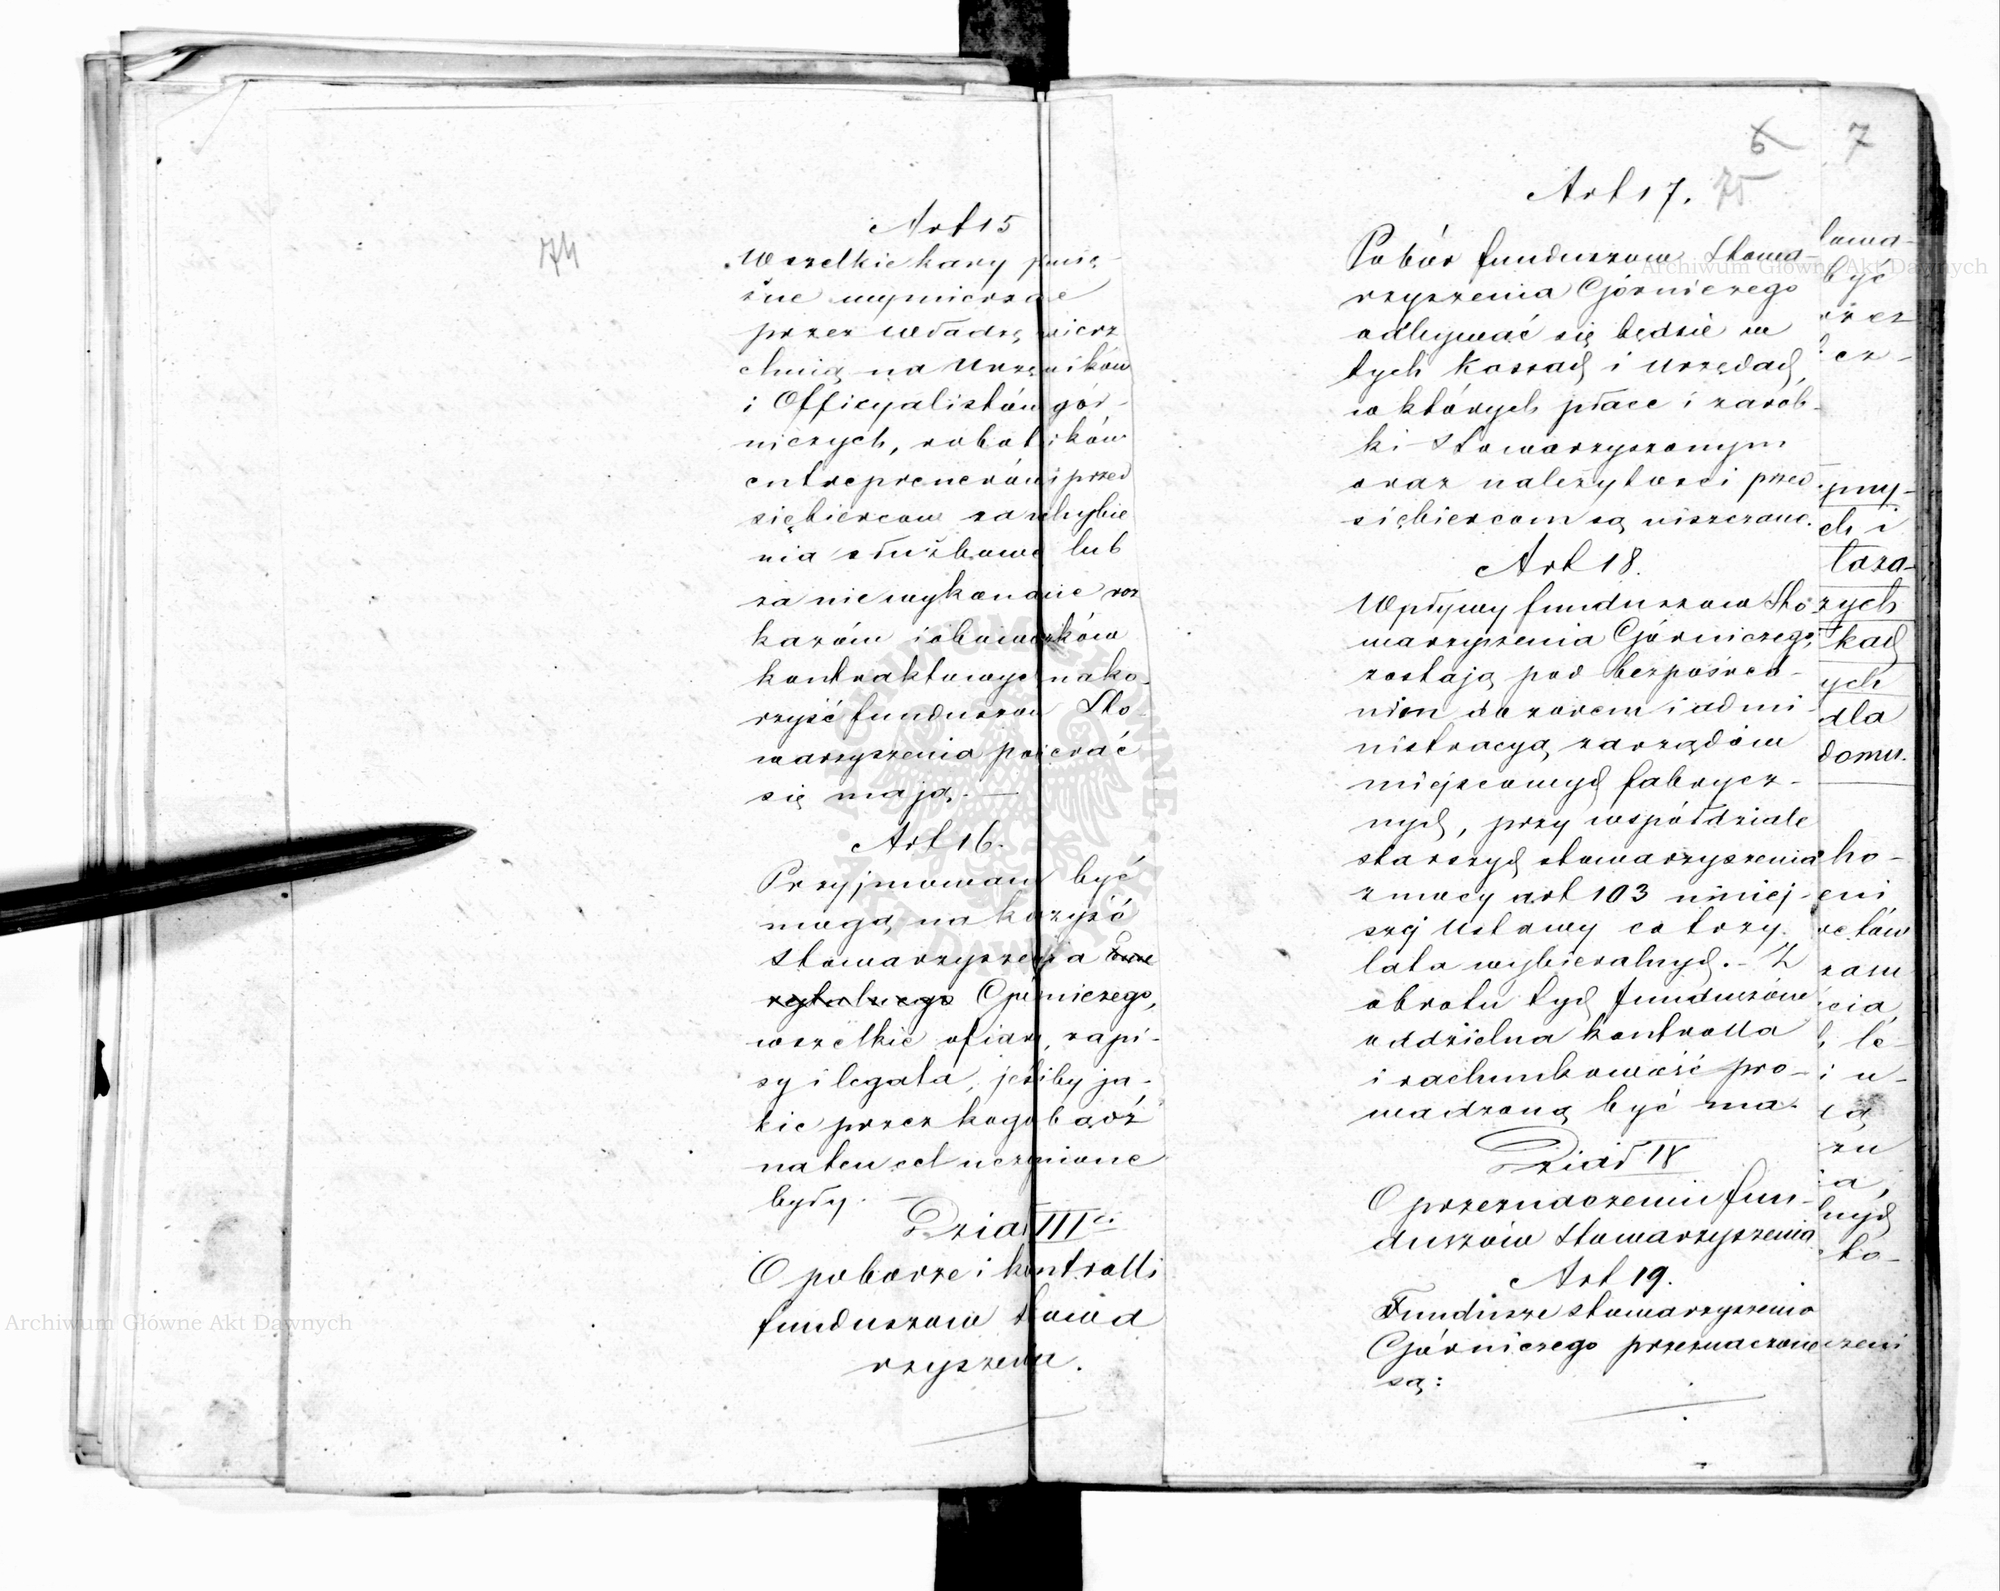 74
Art 15
Wszelkie kary pienię-
żne wymierzane
przez Władzę zwierz
chnią na Urzędników
i Officyalistów gór-
niczych, robotników
entreprenerów i przed
siębierców za uchybie
nia służbowe lub
za niewykonanie roz
kazów i obowiązków
kontraktowych na ko-
rzyść funduszów Sto-
warzyszenia pobierać
się mają. —
Art 16.
Przyjmowane być
mogą na korzyść
Stowarzyszenia Eme
rytalnego Górniczego,
wszelkie ofiary, zapi-
sy i legata, jeżliby ja-
kie przez kogobądź
na ten cel uczynione
były. —
Dział III
O poborze i kontrolli
funduszów Stowa
rzyszenia.
6 7
Art 17. 75
Pobór funduszów Stowa-
rzyszenia Górniczego
odbywać się będzie w
tych Kassach i Urzędach,
w których płace i zarob-
ki Stowarzyszonym
oraz należytości przed
siębiercom są uiszczane.
Art 18.
Wpływy funduszów Sto
warzyszenia Górniczego,
zostają pod bezpośred-
nim dozorem i admi-
nistracyą zarządów
miejscowych fabrycz-
nych, przy współdziale
starszych stowarzyszenia
z mocy art 103 niniej-
szej Ustawy co trzy
lata wybieralnych. - Z
obrotu tych funduszów
oddzielna kontrolla
i rachunkowość pro-
wadzoną być ma.
Dział IV
O przeznaczeniu fun-
duszów Stowarzyszenia
Art 19.
Fundusze stowarzyszenia
Górniczego przeznaczone
są:
towa-
być
pny-
ch i
zych
kach
ych
dla
domu.
Archiwum Główne Akt Dawnych
Archiwum Główne Akt Dawnych